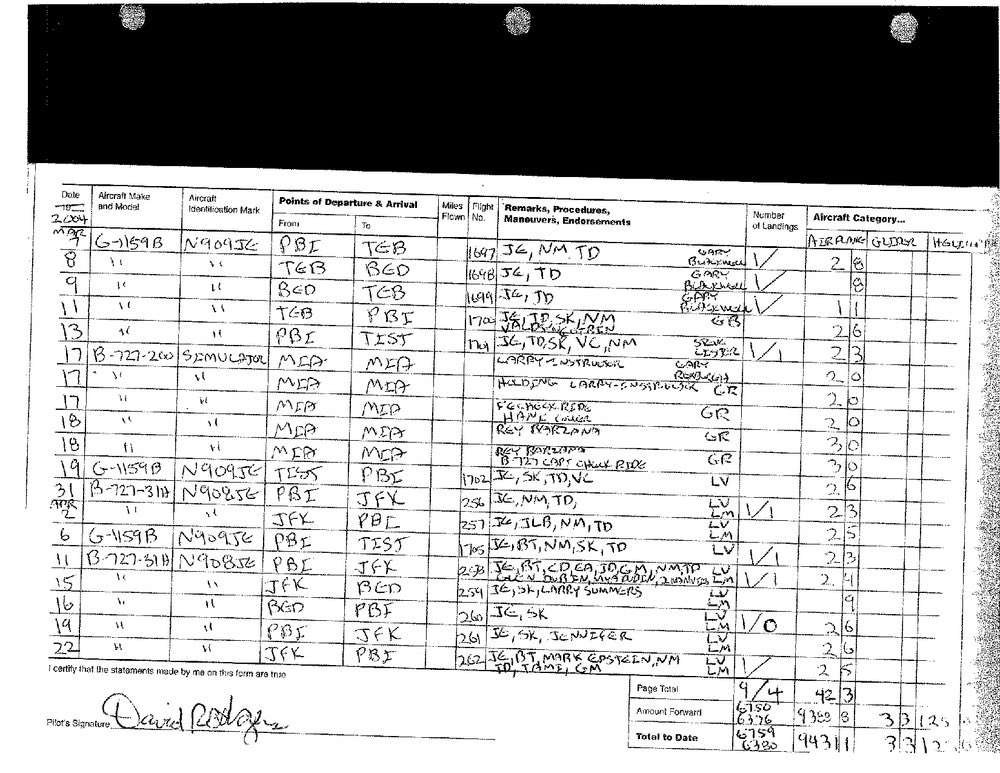 Date Aircraft Make and Model Aircraft Identification Mark Points of Departure & Arrival Miles Flown Flight No. Remarks, Procedures, Maneuvers, Endorsements Number of Landings Aircraft Category...
2004 From To AIRPLANE GLIDER
MAR
7 G-1159B N909JE PBI TEB 1697 JE, NM, TD GARY BLACKWELL 1/ 2 8
8 " " TEB BED 1698 JE, TD GARY BLACKWELL 1/ 8
9 " " BED TEB 1699 JE, TD GARY BLACKWELL 1/ 1 1
11 " " TEB PBI 1700 JE, TD, SK, NM GB 2 6
13 " " PBI TEST 1701 JE, TD, SK, VC, NM LESTER 1/1 2 3
17 B-727-200 SIMULATOR MIA MIA LARRY-INSTRUCTOR GARY ROXBURGH 2 0
17 " " MIA MIA HOLDING LARRY-INSTRUCTOR GR 2 0
17 " " MIA MIA FE CHECK RIDE HANK GR 2 0
18 " " MIA MIA REY BARZANA GR 3 0
18 " " MIA MIA REY BARZANA B-727 CAPT CHECK RIDE GR 3 0
19 G-1159B N909JE TEST PBI 1702 JE, SK, TD, VC LV 2 6
31 B-727-31H N908JE PBI JFK 256 JE, NM, TD, LV LM 1/1 2 3
APR
2 " " JFK PBI 257 JE, JLB, NM, TD LV LM 2 5
6 G-1159B N909JE PBI TEST 1705 JE, BT, NM, SK, TD LV 1/1 2 3
11 B-727-31H N908JE PBI JFK 258 JE, BT, CD, EA, JD, GM, NM, TD LV LM 1/1 2 4
15 " " JFK BED 259 JE, SK, LARRY SUMMERS LV LM 9
16 " " BED PBI 260 JE, SK LV LM 1/0 2 6
19 " " PBI JFK 261 JE, SK, JENNIFER LV LM 2 6
22 " " JFK PBI 262 JE, BT, MARK EPSTEIN, NM LV 1/ 2 5
JD, TAMI, GM LM
I certify that the statements made by me on this form are true
Page Total 9/4 42 3
Pilot's Signature David Rodgers Amount Forward 6750 6376 9388 8 3 3
Total to Date 6759 6380 9431 1 3 3